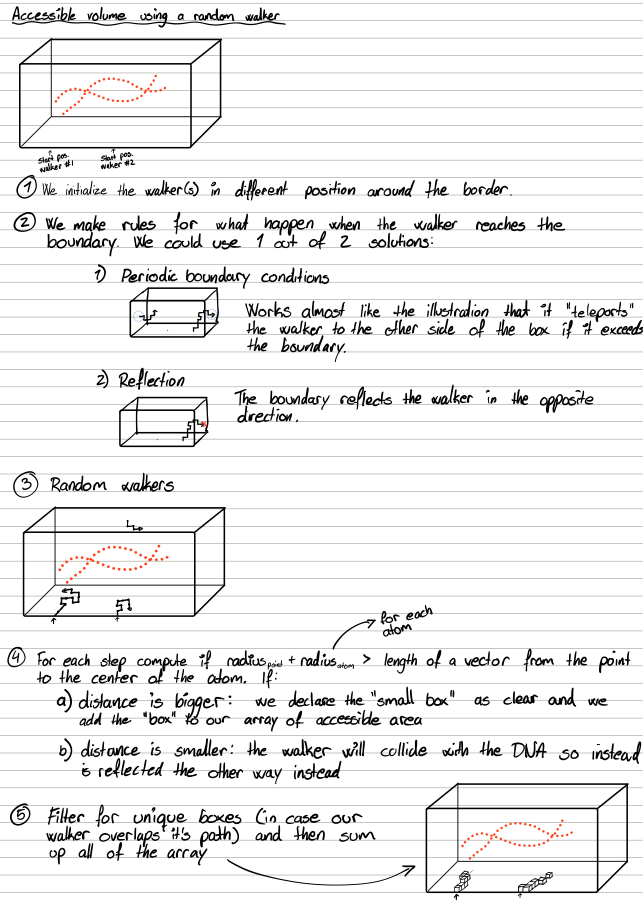 Accessible volume using a random walker
Start pos. walker #1
Start pos. walker #2
① We initialize the walker(s) in different position around the border.
② We make rules for what happen when the walker reaches the
boundary. We could use 1 out of 2 solutions:
1) Periodic boundary conditions
Works almost like the illustration that it "teleports"
the walker to the other side of the box if it exceeds
the boundary.
2) Reflection
The boundary reflects the walker in the opposite
direction.
③ Random walkers
for each
atom
④ For each step compute if radius point + radius atom > length of a vector from the point
to the center of the atom. If:
a) distance is bigger: we declare the "small box" as clear and we
add the "box" to our array of accessible area
b) distance is smaller: the walker will collide with the DNA so instead
is reflected the other way instead
⑤ Filter for unique boxes (in case our
walker overlaps it's path) and then sum
up all of the array